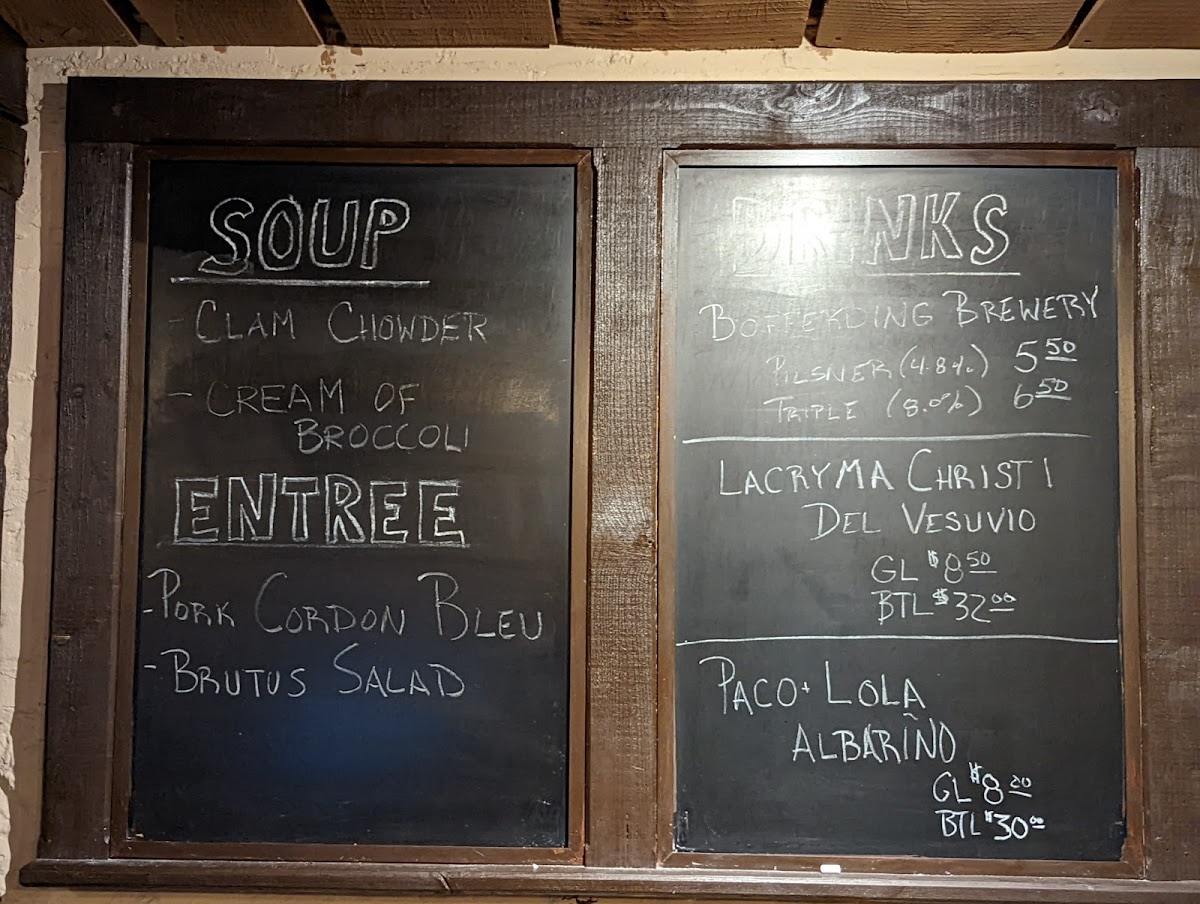 SOUP
- CLAM CHOWDER
- CREAM OF
BROCCOLI
ENTREE
- PORK CORDON BLEU
- BRUTUS SALAD
DRINKS
BOFFERDING BREWERY
PILSNER (4.8%) 5 50
TRIPLE (8.0%) 6 50
LACRYMA CHRISTI
DEL VESUVIO
GL $8 50
BTL $32 00
PACO + LOLA
ALBARIÑO
GL $8 00
BTL $30 00